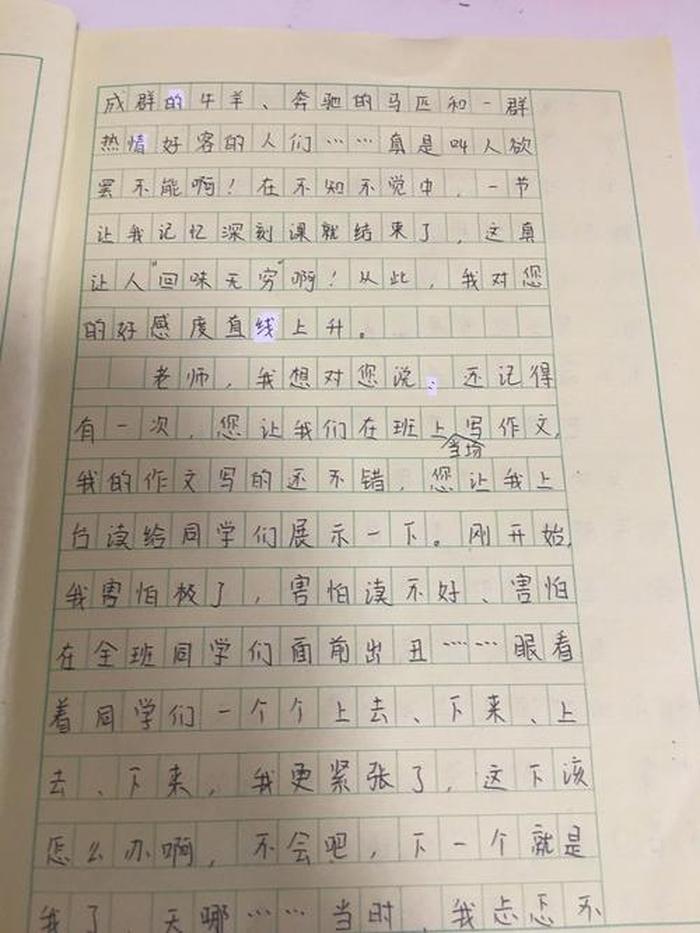 成群的牛羊、奔驰的马匹和一群
热情好客的人们……真是叫人欲
罢不能啊！在不知不觉中，一节
让我记忆深刻课就结束了，这真
让人"回味无穷"啊！从此，我对您
的好感度直线上升。
老师，我想对您说：还记得
有一次，您让我们在班上写作文，
当场
我的作文写的还不错，您让我上
台读给同学们展示一下。刚开始，
我害怕极了，害怕读不好、害怕
在全班同学们面前出丑……眼看
着同学们一个个上去、下来、上
去、下来，我更紧张了，这下该
怎么办啊，不会吧，下一个就是
我了，天哪……当时，我忐忑不